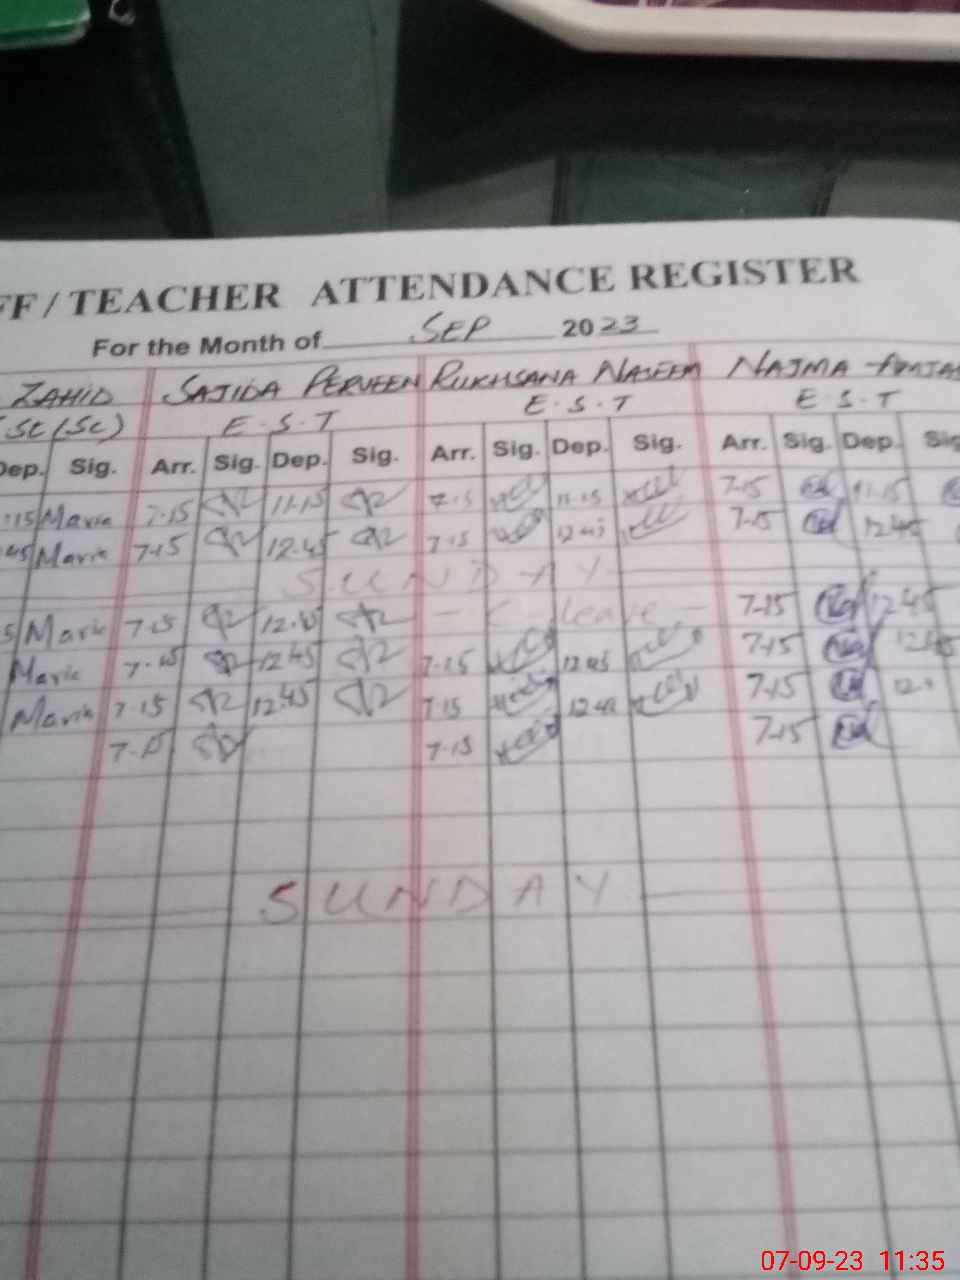 FF / TEACHER ATTENDANCE REGISTER
For the Month of SEP 2023
ZAHID SAJIDA PERVEEN RUKHSANA NASEEM NAJMA
(SC) E.S.T E.S.T E.S.T
Dep. Sig. Arr. Sig. Dep. Sig. Arr. Sig. Dep. Sig. Arr. Sig. Dep. Sig
:15 Maria 7-15 11-15 7-15 11-15 7-15 11-15
45 Maria 7-15 12.45 7-15 12 45 7-15 12 45
SUNDAY
5 Maria 7-15 12.45 - C - leave - 7-15 12 45
Maria 7-15 12 45 7-15 12 45 7-15 12 45
Maria 7-15 12.45 7-15 12 45 7-15 12
7-15 7-15 7-15
SUNDAY
07-09-23 11:35